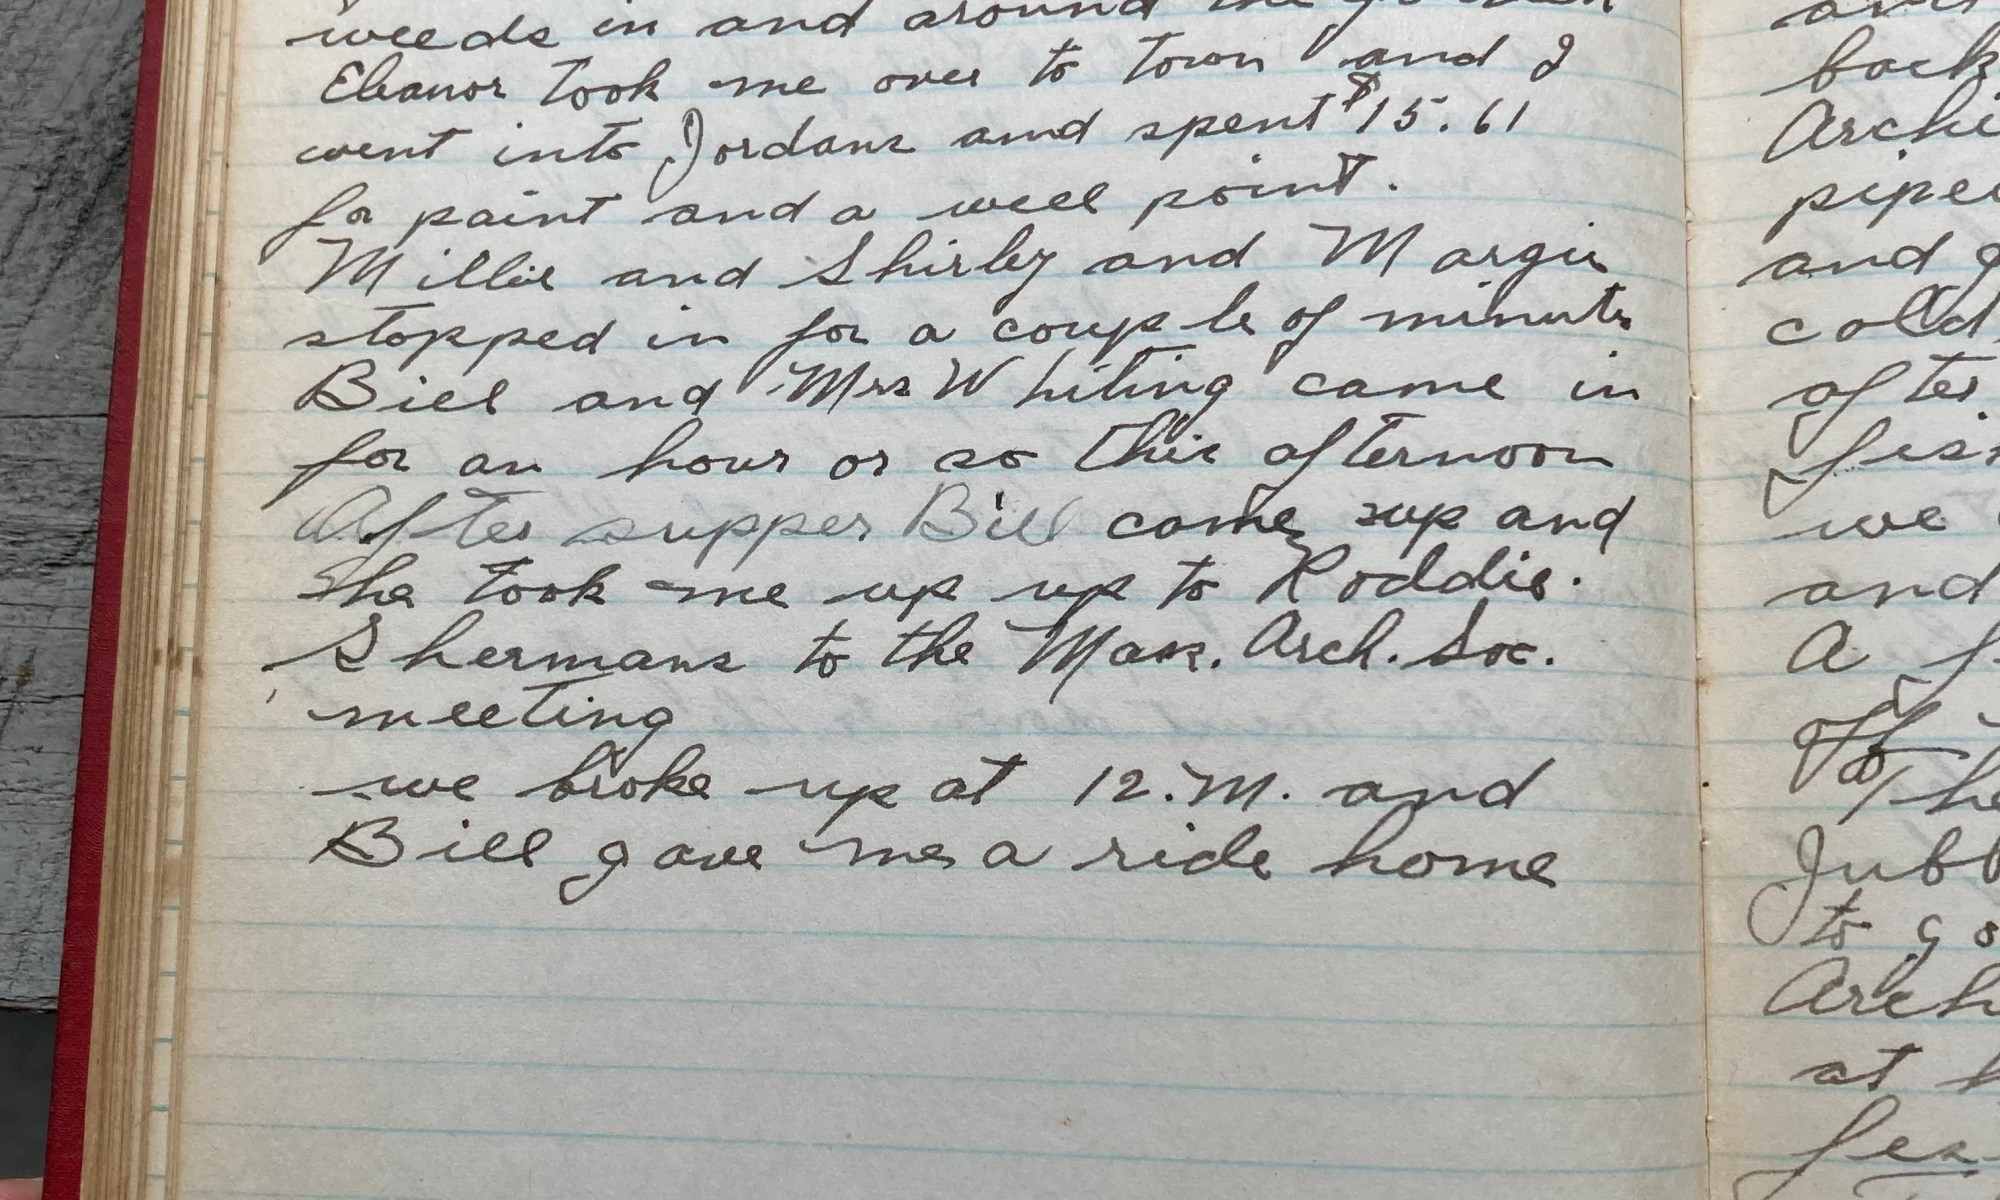 weeds in and around the garden
Eleanor took me over to town and I
went into Jordans and spent $15.61
for paint and a well point.
Millie and Shirley and Margie
stopped in for a couple of minuts
Bill and Mrs Whiting came in
for an hour or so this afternoon
After supper Bill come up and
She took me up up to Roddie.
Shermans to the Mass. Arch. Soc.
meeting
we broke up at 12.M. and
Bill gave me a ride home
back
Archi
piper
and g
cold
after
fish
we
and
A f
The
Jubb
to go
Arch
at h